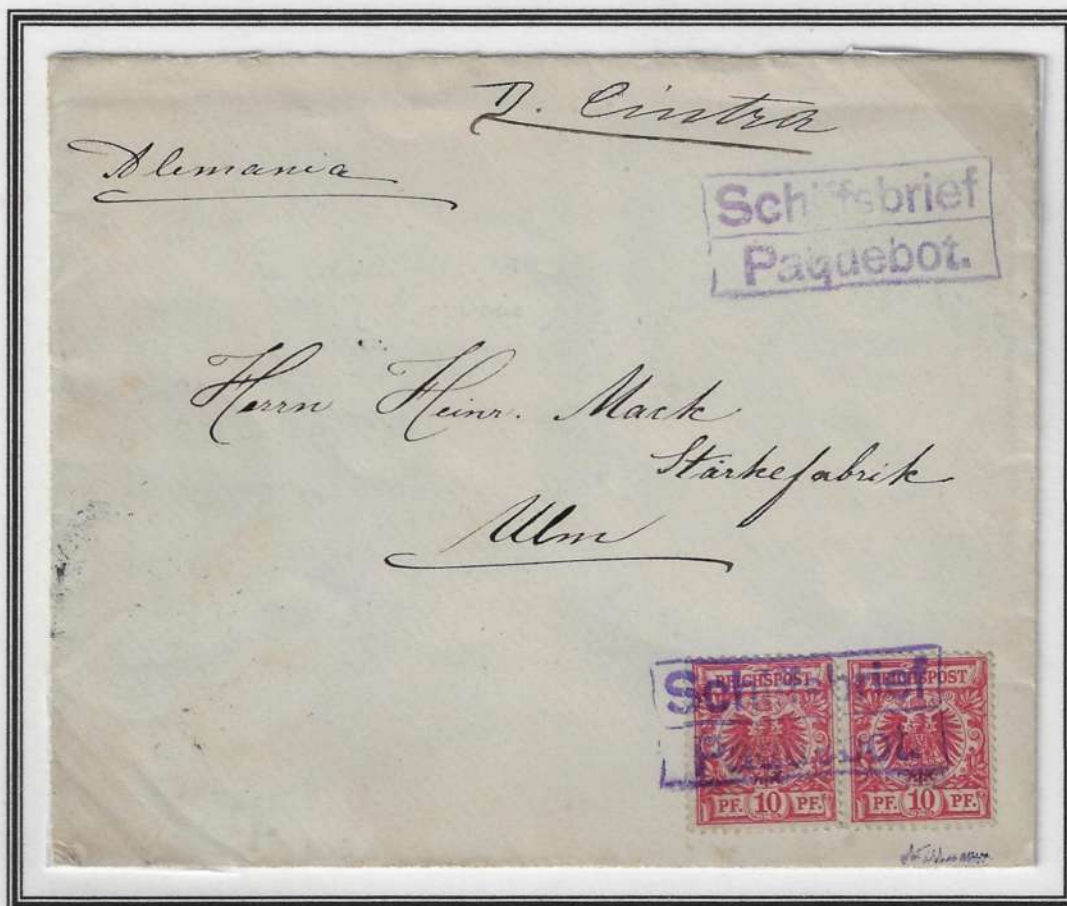 D. Cintra
Alemania
Schiffsbrief
Paquebot.
Herrn Heinr. Mack
Stärkefabrik
Ulm
Schiffsbrief
Paquebot.
REICHSPOST REICHSPOST
PF. 10 PF. PF. 10 PF.